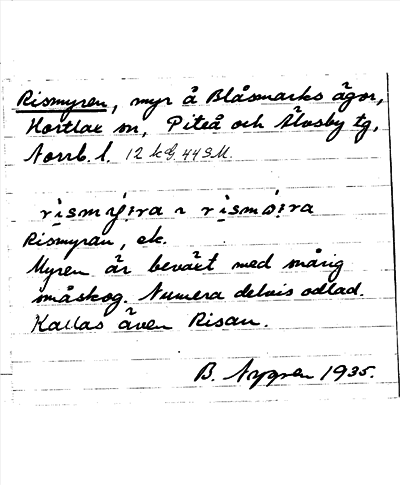 Rismyren, myr å Blåsmarks ägor,
Hortlax sn, Piteå och Älvsby tg,
Norrb. l. 12 kG. 44 SM.
Rismyran, ek.
Myren är beväxt med snårig
småskog. Numera delvis odlad.
Kallas även Risan.
B. Nygren 1935.